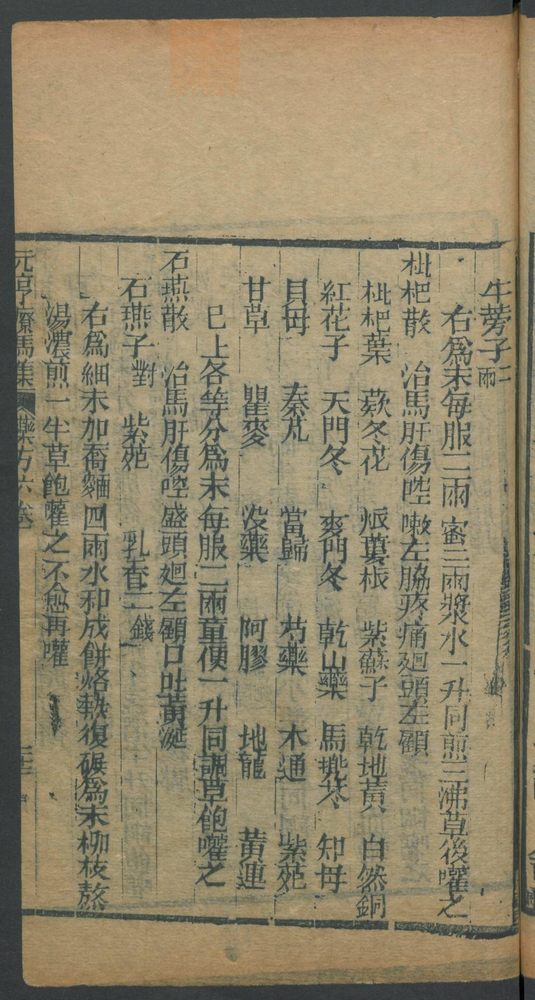 牛蒡子二兩
右爲末每服二兩蜜三兩漿水一升同煎三沸草後嚾之
枇杷散　治馬肝傷啌嗽左脇疼痛廻頭左顧
枇杷葉　欵冬花　栝蔞根　紫蘇子　乾地黃　自然銅
紅花子　天門冬　麥門冬　乾山藥　馬兠苓　知母
貝母　秦艽　當歸　芍藥　木通　紫菀
甘草　瞿麥　没藥　阿膠　地龍　黃連
已上各等分爲末每服二兩童便一升同調草飽嚾之
石燕散　治馬肝傷啌盛頭廻左顧口吐黃涎
石燕子對　紫菀　乳香二錢
右爲細末加喬麵四兩水和成餅烙熟復碾爲末柳枝熬
湯濃煎一半草飽嚾之不愈再嚾
元亨療馬集　藥方六卷